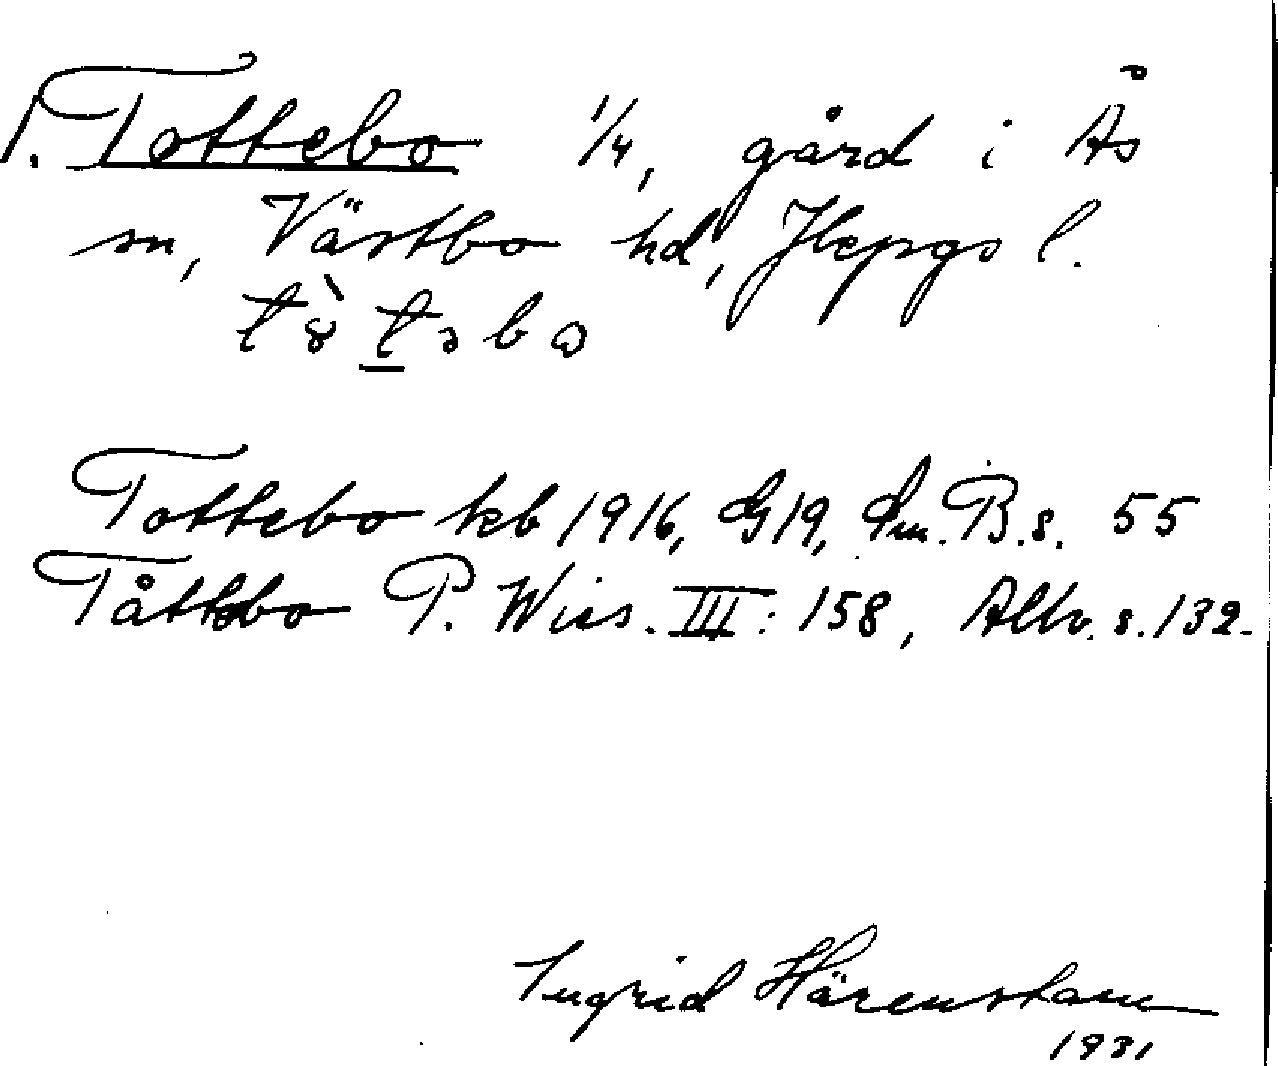 1. Tottebo 1/4, gård i Ås
sn, Västbo hd, Jkpgs l.
Tottebo kb 1916, G19, Sm. B. s. 55
Tåttbo P. Wies. III: 158, Allv. s. 132.
Ingrid Härenstam
1931